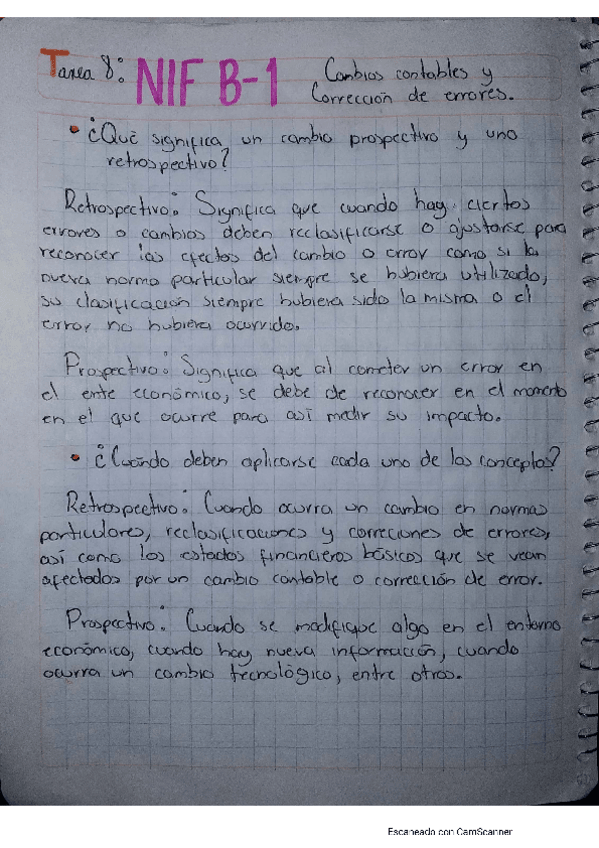 Tarea 8: NIF B-1 Cambios contables y
Corrección de errores.
• ¿Qué significa un cambio prospectivo y uno
retrospectivo?
Retrospectivo: Significa que cuando hay ciertos
errores o cambios deben reclasificarse o ajustarse para
reconocer los efectos del cambio o error como si la
nueva norma particular siempre se hubiera utilizado,
su clasificación siempre hubiera sido la misma o el
error no hubiera ocurrido.
Prospectivo: Significa que al cometer un error en
el ente económico, se debe de reconocer en el momento
en el que ocurre para así medir su impacto.
• ¿Cuándo deben aplicarse cada uno de los conceptos?
Retrospectivo: Cuando ocurra un cambio en normas
particulares, reclasificaciones y correciones de errores,
así como los estados financieros básicos que se vean
afectados por un cambio contable o corrección de error.
Prospectivo: Cuando se modifique algo en el entorno
económico, cuando hay nueva información, cuando
ocurra un cambio tecnológico, entre otros.
Escaneado con CamScanner